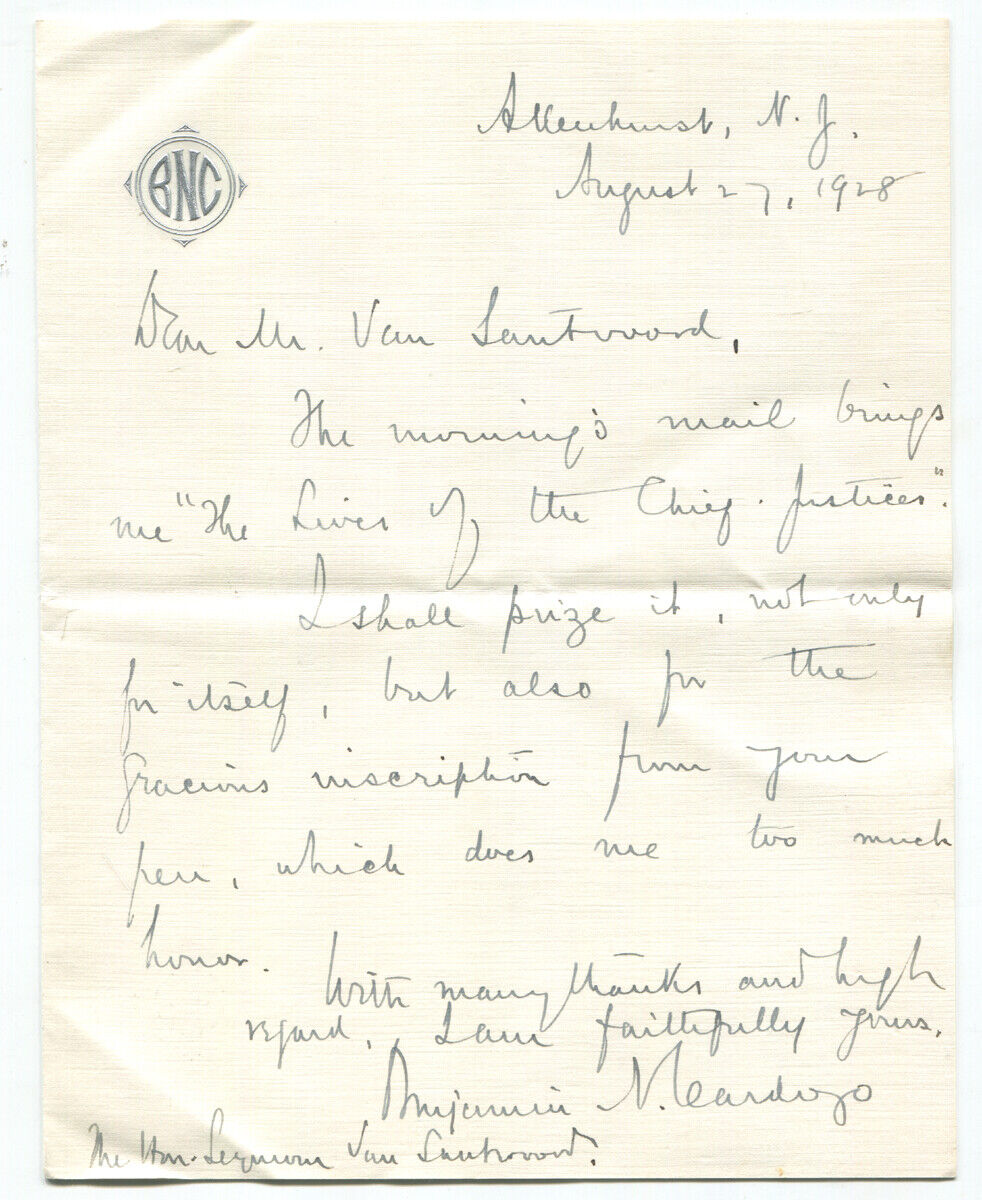 BNC
Allenhurst, N. J.
August 27, 1928
Dear Mr. Van Santvoord,
The morning's mail brings
me "The Lives of the Chief Justices".
I shall prize it, not only
for itself, but also for the
gracious inscription from your
pen, which does me too much
honor.
With many thanks and high
regard, I am faithfully yours,
Benjamin N. Cardozo
The Hon. Seymour Van Santvoord.